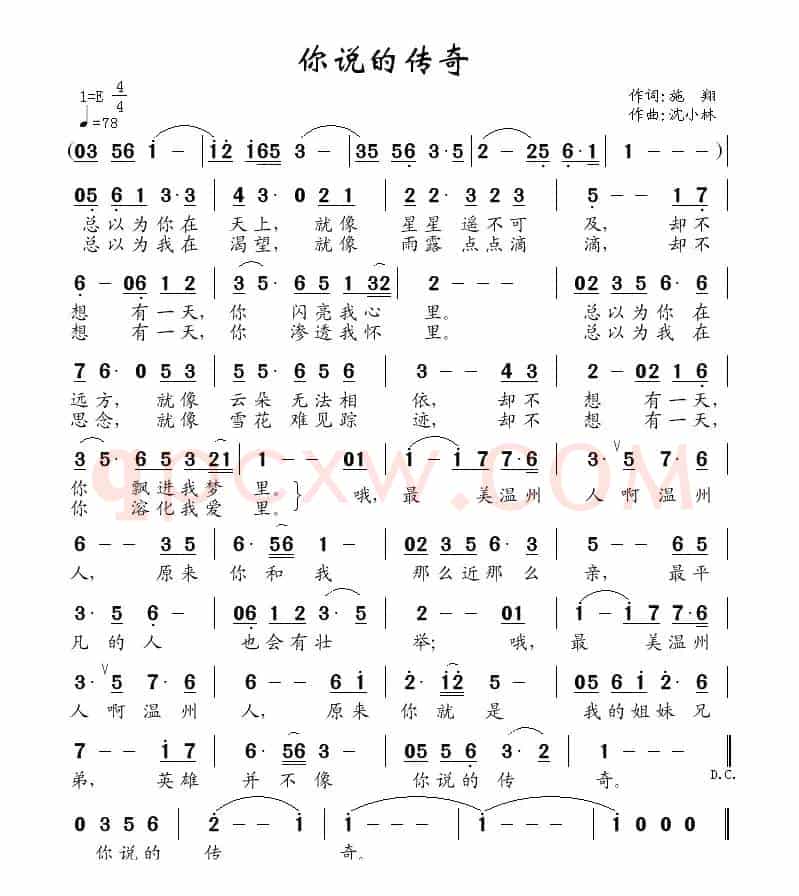 你说的传奇
1=E 4/4
♩=78
作词:施 翔
作曲:沈小林
(03 56 i - | i2 i65 3 - | 35 56 3·5 | 2 - 25 6·1 | 1 - - - )
05 6 1 3·3 | 4 3· 0 2 1 | 2 2· 3 2 3 | 5 - - 1 7 |
总以为你在 天上, 就像 星星遥不可 及, 却不
总以为我在 渴望, 就像 雨露点点滴 滴, 却不
6 - 06 1 2 | 3 5· 6 5 1 32 | 2 - - - | 02 3 5 6·6 |
想 有一天, 你 闪亮我心 里。 总以为你在
想 有一天, 你 渗透我怀 里。 总以为我在
7 6· 0 5 3 | 5 5· 6 5 6 | 3 - - 4 3 | 2 - 02 1 6 |
远方, 就像 云朵无法相 依, 却不 想 有一天,
思念, 就像 雪花难见踪 迹, 却不 想 有一天,
3 5· 6 5 3 21 | 1 - - 01 | i - i 7 7·6 | 3· 5 7·6 |
你 飘进我梦 里。 哦, 最 美温州 人啊温州
你 溶化我爱 里。
qpcxw.COM
6 - - 3 5 | 6· 56 1 - | 02 3 5 6·6 | 5 - - 6 5 |
人, 原来 你和我 那么近那么 亲, 最平
3· 5 6 - | 06 1 2 3·5 | 2 - - 01 | i - i 7 7·6 |
凡的人 也会有壮 举; 哦, 最 美温州
3· 5 7·6 | 6 - - 3 5 | 2· i2 5 | 05 6 i 2 i |
人啊温州 人, 原来 你就是 我的姐妹兄
7 - - i 7 | 6· 56 3 - | 05 5 6 3·2 | 1 - - - ‖
弟, 英雄 并不像 你说的传 奇。
D.C.
0 3 5 6 | 2 - - i | i - - - | i - - - | i 0 0 0 ‖
你说的 传 奇。